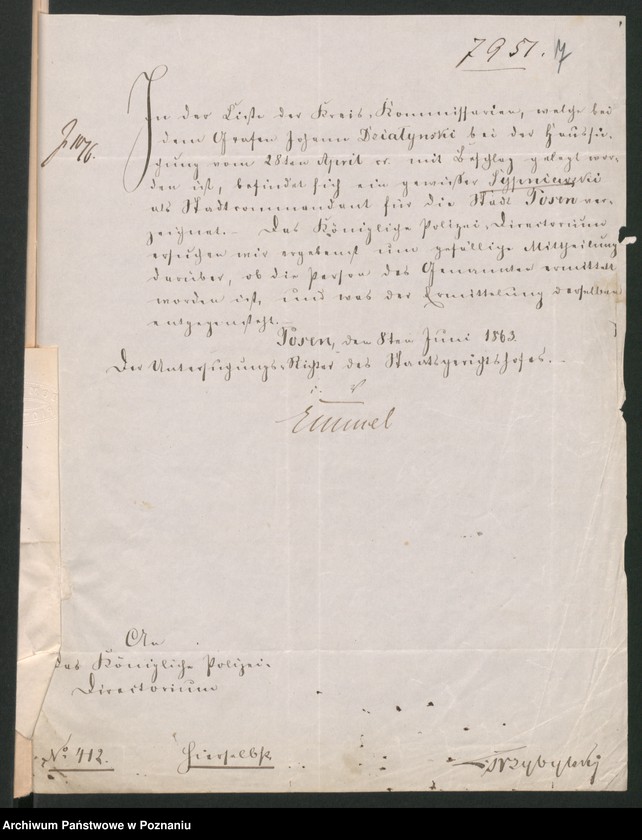 7951.
In der Liste der Kreis-Kommissarien, welche bei
dem Grafen Johann Dzialynski bei der Haussu-
chung vom 28ten April cr. mit Beschlag gelegt wor-
den ist, befindet sich ein gewisser
als Stadtcommandant für die Stadt Posen ver-
zeichnet. Das Königliche Polizei-Directorium
ersuchen wir ergebenst um gefällige Mittheilung
darüber, ob die Person des Genannten ermittelt
worden ist, und was der Ermittelung derselben
entgegensteht.
Posen, den 8ten Juni 1863.
Der Untersuchungs-Richter des Staatsgerichtshofes.
An
das Königliche Polizei-
Directorium
No 412.
Hierselbst
Archiwum Państwowe w Poznaniu